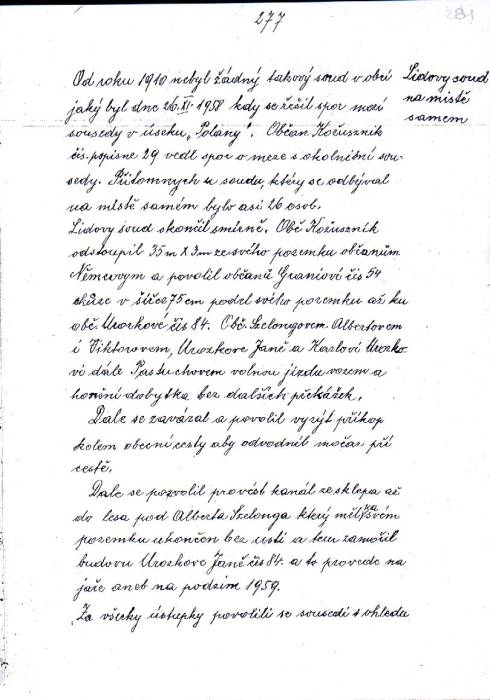 277
281
Od roku 1910 nebyl žádný takový soud v obci
jaký byl dne 26.XI. 1958 kdy se řešil spor mezi
sousedy v úseku „Polany". Občan Kožusznik
čís. popisne 29 vedl spor o meze s okolnitní sou-
sedy. Přítomnych u soudu, který se odbýval
na místě samém bylo asi 26 osob.
Lidovy soud skončil smírně. Obč Kožusznik
odstoupil 35 m X 3 m ze svého pozemku občanům
Němcovym a povolil občaně Graniové čís 54
chůze v šířce 75 cm podel svého pozemku až ku
obč. Urozkové čís 84. Obč. Szelongovem Albertovem
i Viktorovem, Urozkove Janě a Karlovi Urozko
vi dále Pastuchovem volnou jízdu vozem a
honění dobytka bez dalších překážek.
Dale se zavázal a povolil vyrýt příkop
kolem obecní cesty aby odvodnil močar při
cestě.
Dale se pozvolil provést kanál ze sklepa až
do lesa pod Alberta Szelonga který měl na svém
pozemku ukončen bez ústi a tem zamočil
budovu Urozkove Janě čís 84. a to provede na
jaře aneb na podzim 1959.
Za všecky ústupky povolili se sousedi s ohledu
Lidovy soud
na mistě
samem